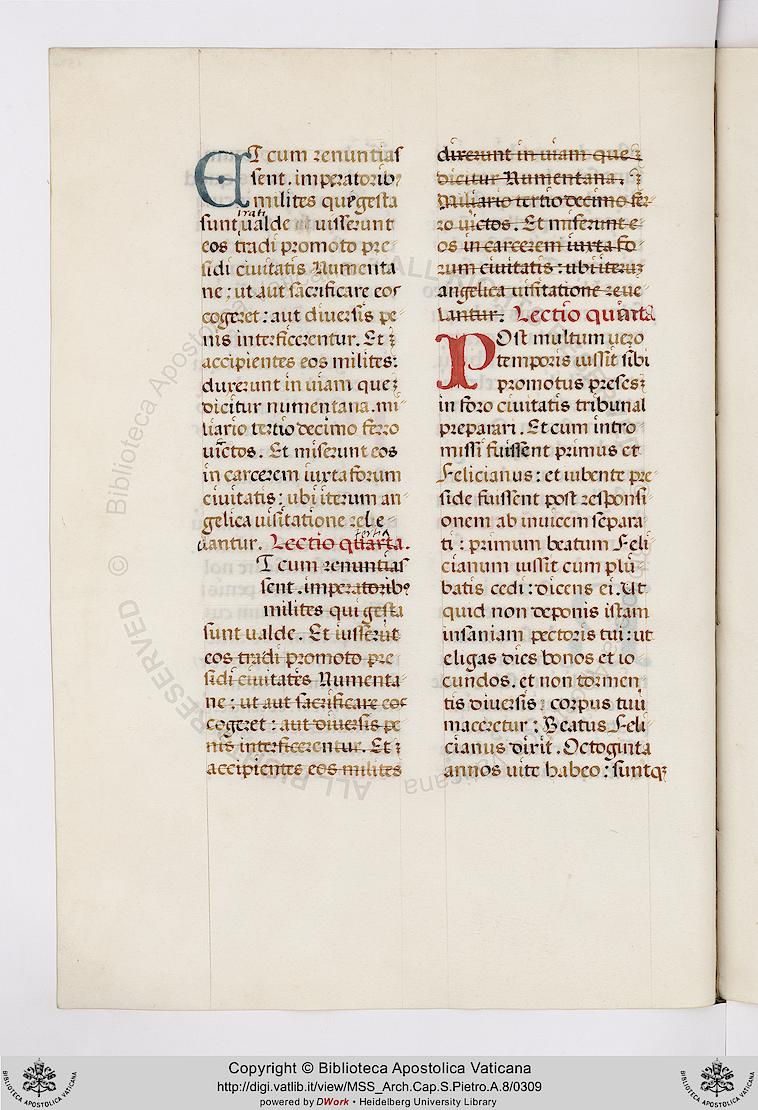 ET cum renuntias
sent. imperatorib;
milites que gesta
irati
sunt ualde et iusserunt
eos tradi promoto pre
sidi ciuitatis Numenta
ne: ut aut sacrificare eos
cogeret: aut diuersis pe
nis interficerentur. Et
accipientes eos milites:
duxerunt in uiam que
dicitur numentana. mi
liario tertiodecimo ferro
uictos. Et miserunt eos
in carcerem iuxta forum
ciuitatis: ubi iterum an
gelica uisitatione rele
uantur. Lectio quarta.
tertia
T cum renuntias
sent. imperatorib;
milites qui gesta
sunt ualde. Et iusserūt
eos tradi promoto pre
sidi ciuitates Numenta
ne: ut aut sacrificare eos
cogeret: aut diuersis pe
nis interficerentur. Et
accipientes eos milites
dixerunt in uiam que
dicitur Numentana.
Miliario tertiodecimo fer
ro uictos. Et miserunt e
os in carcerem iuxta fo
rum ciuitatis: ubi iterum
angelica uisitatione reue
lantur. Lectio quinta
POst multum uero
temporis iussit sibi
promotus preses
in foro ciuitatis tribunal
preparari. Et cum intro
missi fuissent primus et
Felicianus: et iubente pre
side fuissent post responsi
onem ab inuicem separa
ti: primum beatum Feli
cianum iussit cum plū
batis cedi: dicens ei. Ut
quid non deponis istam
insaniam pectoris tui: ut
eligas dies bonos et io
cundos. et non tormen
tis diuersis: corpus tuū
maceretur: Beatus Feli
cianus dixit. Octoginta
annos uite habeo: suntq;
Copyright © Biblioteca Apostolica Vaticana
http://digi.vatlib.it/view/MSS_Arch.Cap.S.Pietro.A.8/0309
powered by DWork • Heidelberg University Library
BIBLIOTECA APOSTOLICA VATICANA
BIBLIOTECA APOSTOLICA VATICANA